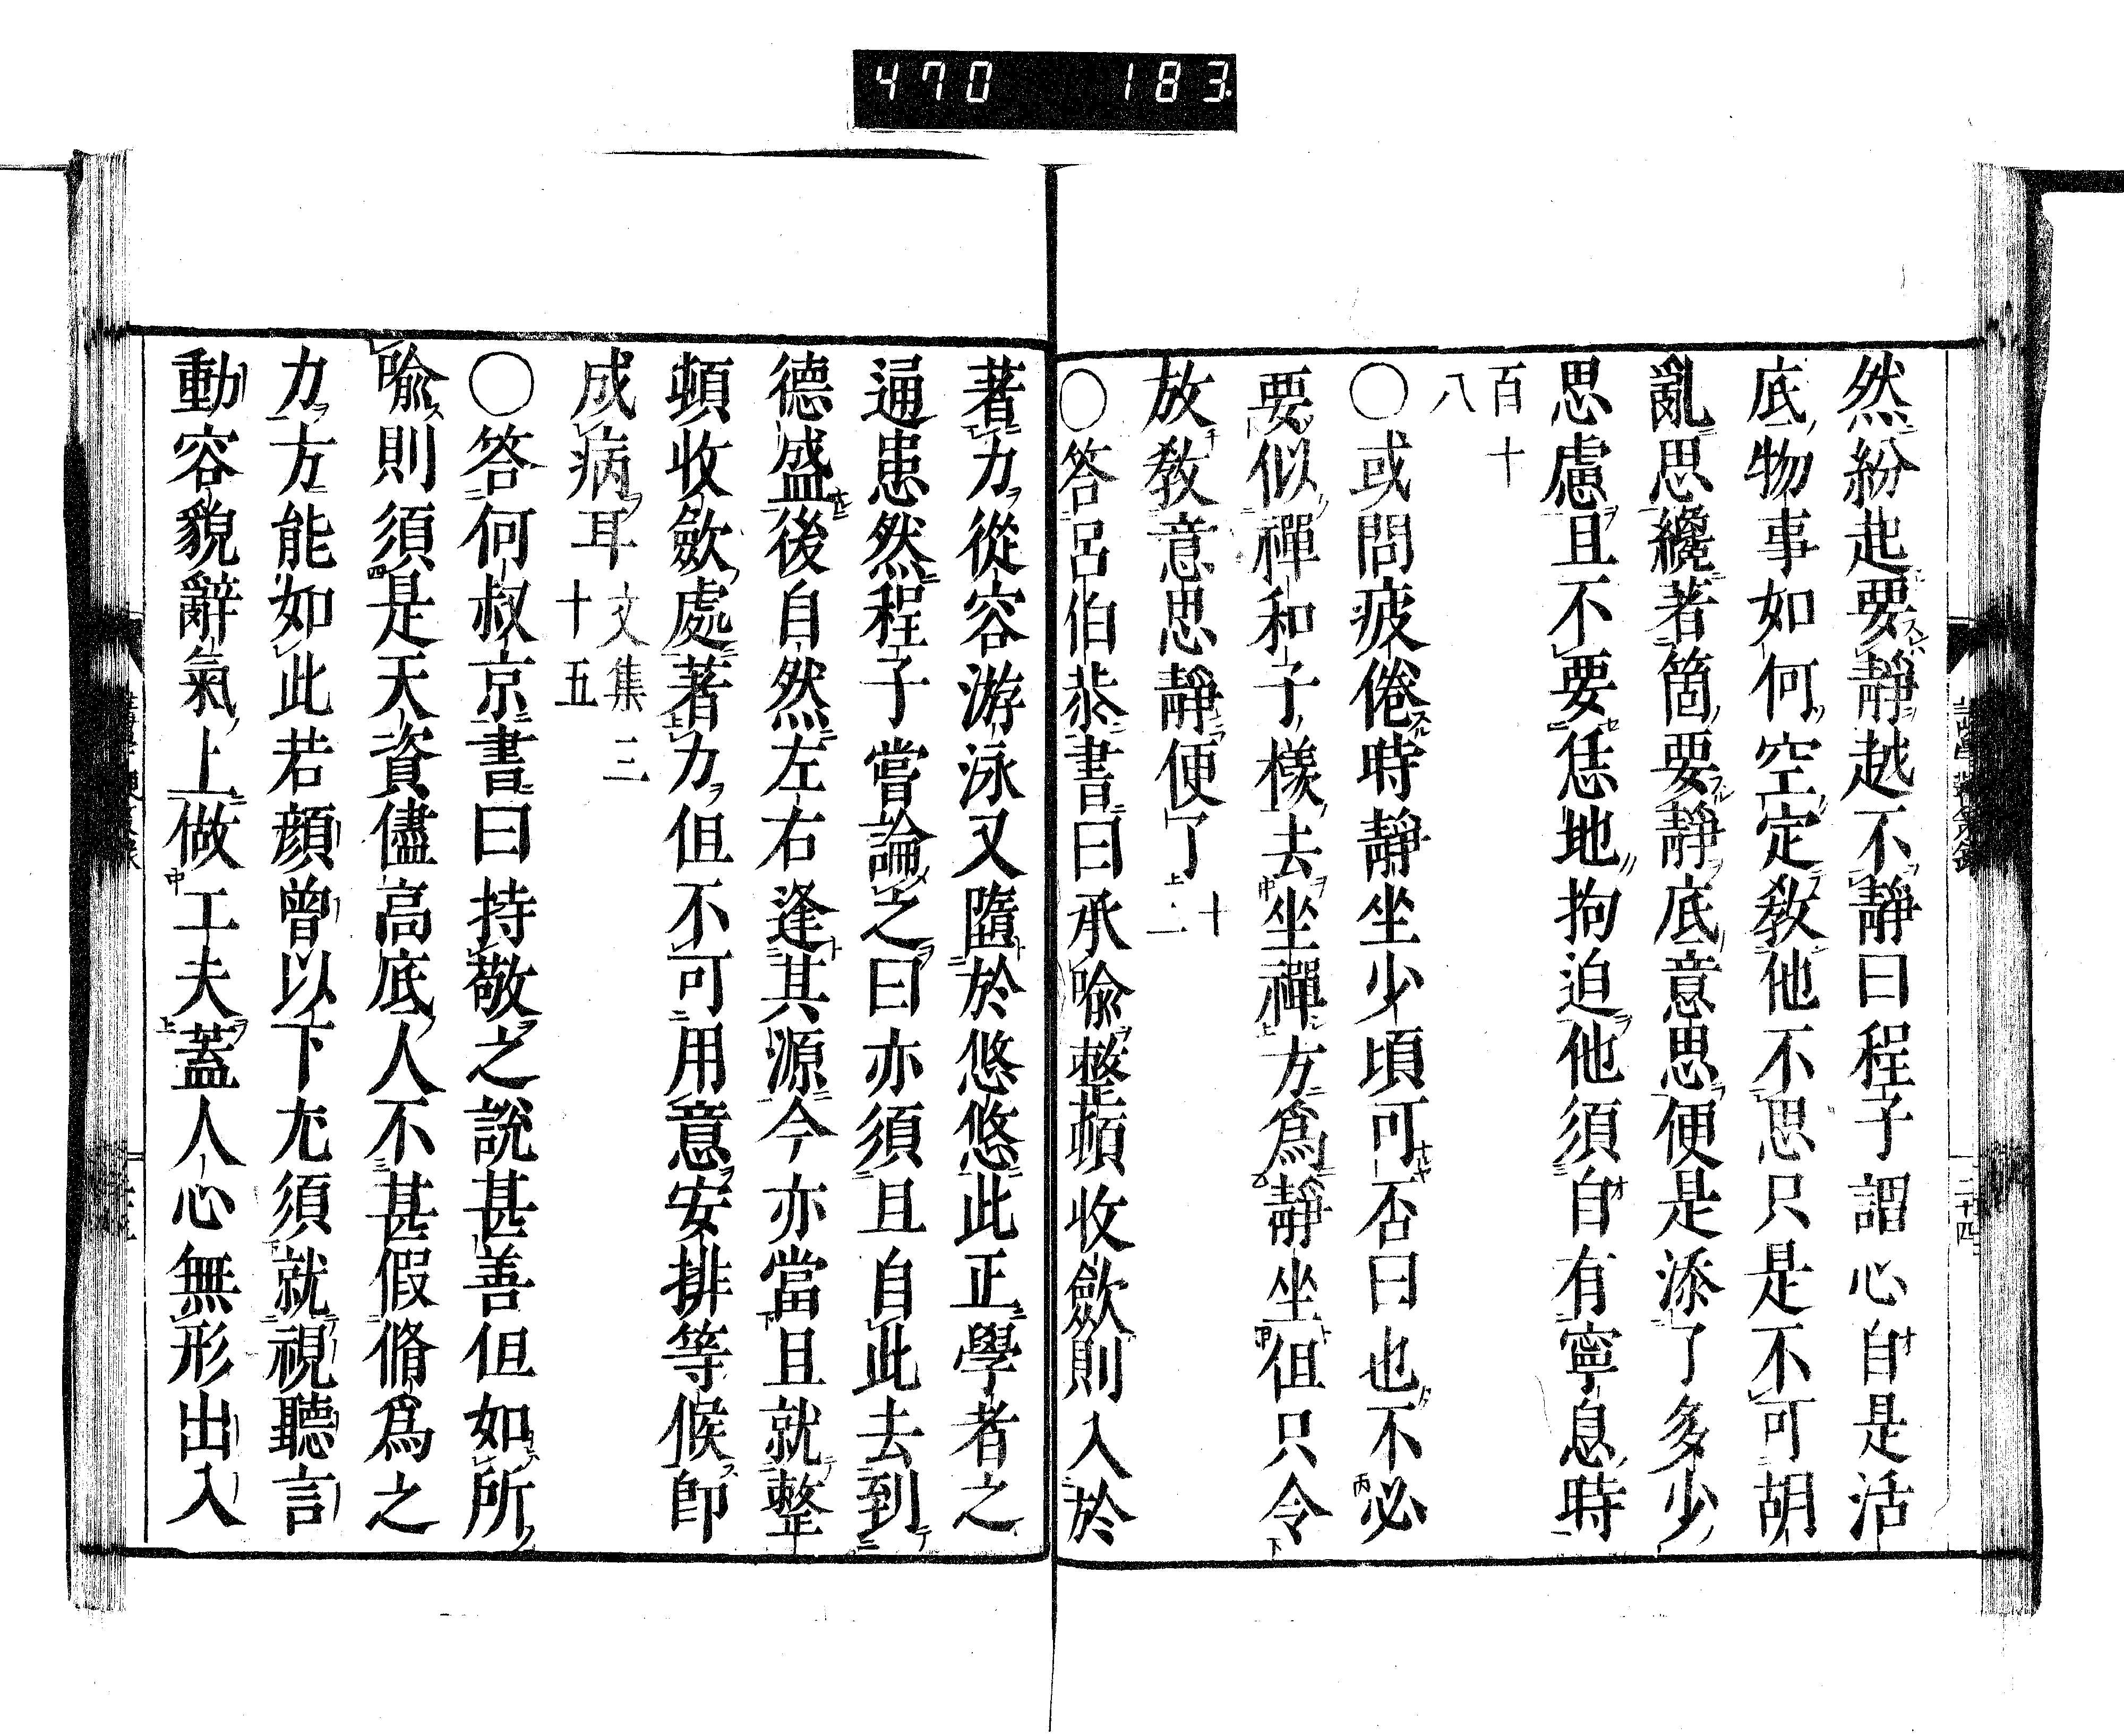 470 183
然紛起要靜越不靜曰程子謂心自是活
底物事如何空定敎他不思只是不可胡
亂思纔著箇要靜底意思便是添了多少
思慮且不要恁地拘迫他須自有寧息時
百十
八
○或問疲倦時靜坐少頃可否曰也不必
要似禪和子樣去坐禪方爲靜坐但只令
放敎意思靜便了
十
上二
○答呂伯恭書曰承喩整頓收歛則入於
著力從容游泳又隨於悠悠此正學者之
通患然程子嘗論之曰亦須且自此去到
德盛後自然左右逢其源今亦當且就整
頓收歛處著力但不可用意安排等候卽
成病耳
文集三
十五
○答何叔京書曰持敬之説甚善但如所
喩則須是天資儘高底人不甚假脩爲之
力方能如此若顔曾以下尤須就視聽言
動容貌辭氣上做工夫蓋人心無形出入